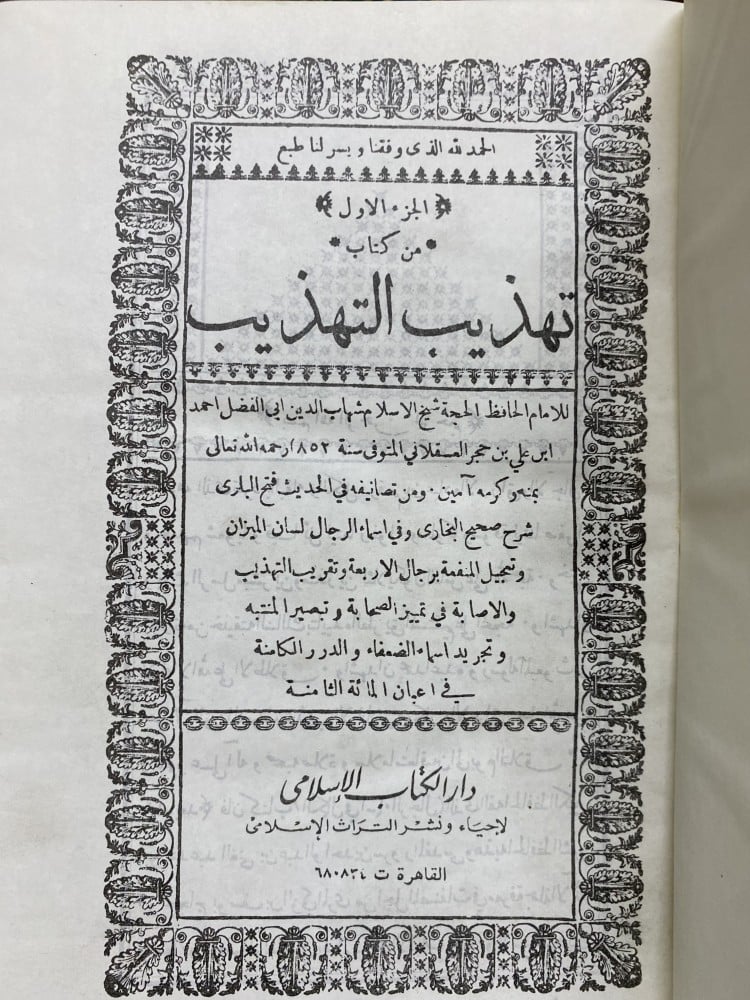 الحمد لله الذى وفقنا ويسر لنا طبع
الجزء الاول
من كتاب
تهذيب التهذيب
للامام الحافظ الحجة شيخ الاسلام شهاب الدين ابي الفضل احمد
ابن علي بن حجر العسقلاني المتوفى سنة ٨٥٢) رحمه الله تعالى
بمنه وكرمه آمين · ومن تصانيفه في الحديث فتح البارى
شرح صحيح البخارى وفي اسماء الرجال لسان الميزان
وتعجيل المنفعة برجال الاربعة وتقريب التهذيب
والاصابة في تمييز الصحابة وتبصير المنتبه
وتجريد اسماء الضعفاء والدرر الكامنة
في اعيان المائة الثامنة
دار الكتاب الإسلامى
لاحياء ونشر التراث الإسلامى
القاهرة ت ٦٨٠٨٣٤